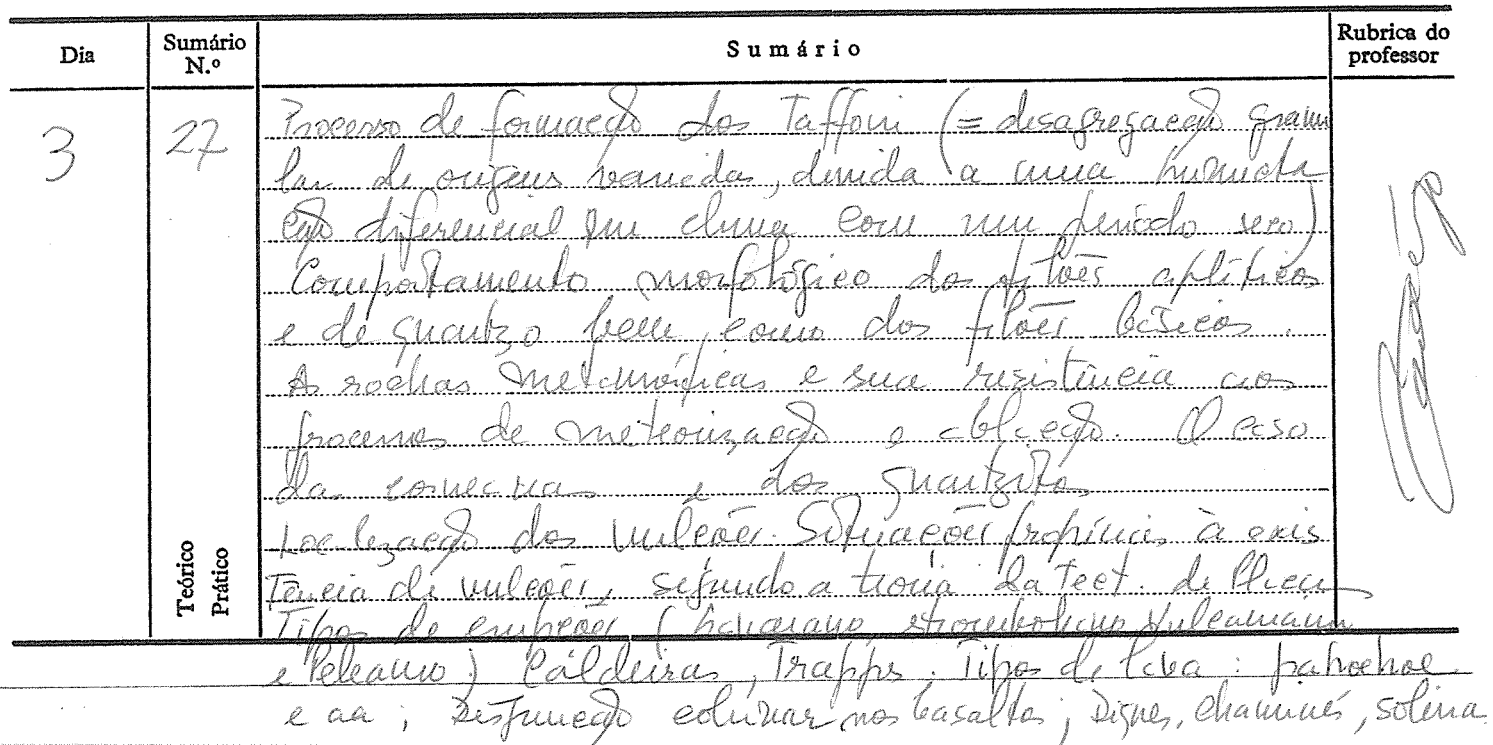 Dia Sumário N.º Sumário Rubrica do professor
3 27 Processo de formação dos Taffoni (= desagregação granu
lar de origens variadas, devida a uma humecta
ção diferencial em clima com um período seco)
Comportamento morfológico dos filões aplíticos
e de quartzo bem como dos filões básicos.
As rochas metamórficas e sua resistência aos
processos de meteorização e ablação. O caso
das corneanas e dos quartzitos
Localização dos vulcões. Situações propícias à exis
tência de vulcões, segundo a teoria da Tect. de Placas
Tipos de erupções (havaiano, stromboliano Vulcaniano
e Peleano) Caldeiras, Trapps. Tipos de lava: pahoehoe
e aa; Disjunção colunar nos basaltos; Diques, chaminés, soleiras
Teórico
Prático